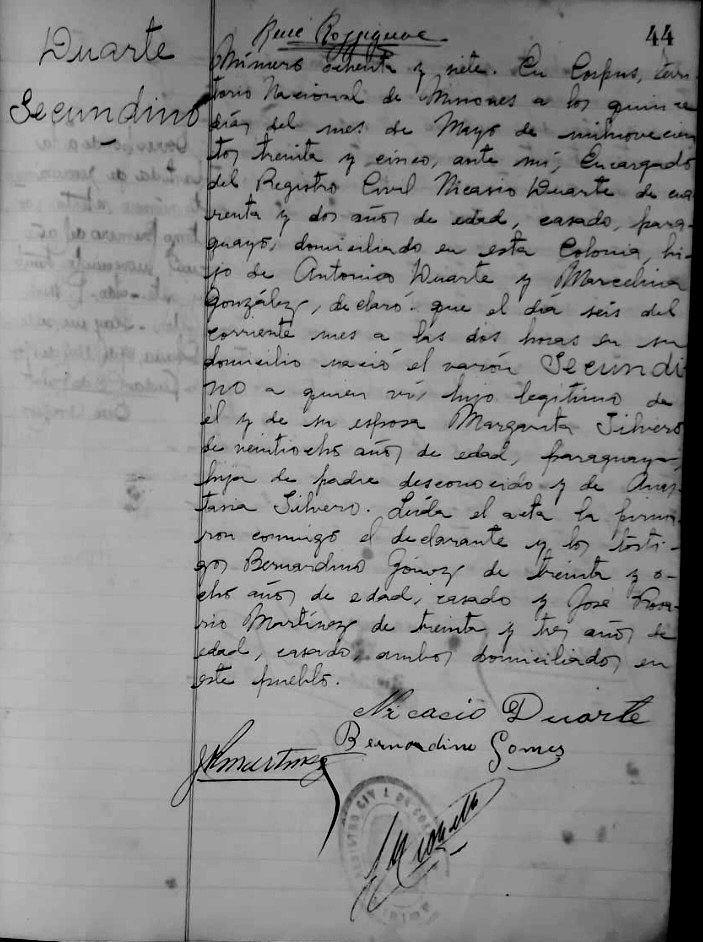 44
Duarte
Secundino
Número ochenta y siete. En Corpus, terri-
torio Nacional de Misiones a los quince
días del mes de Mayo de mil novecien
tos treinta y cinco, ante mí, Encargado
del Registro Civil Nicasio Duarte de cua
renta y dos años de edad, casado, para-
guayo, domiciliado en esta Colonia, hi-
jo de Antonio Duarte y Marcelina
González, declaró: que el día seis del
corriente mes a las dos horas en su
domicilio nació el varón Secundi
no a quien ví, hijo legítimo de
el y de su esposa Margarita Silvero
de veintiocho años de edad, paraguaya,
hija de padre desconocido y de Anas
tasia Silvero. Leída el acta la firma-
ron conmigo el declarante y los testi-
gos Bernardino Gómez de treinta y o-
cho años de edad, casado y José Rosa-
rio Martínez de treinta y tres años de
edad, casado, ambos domiciliados en
este pueblo.
Nicacio Duarte
Bernardino Gomes
JRmartinez